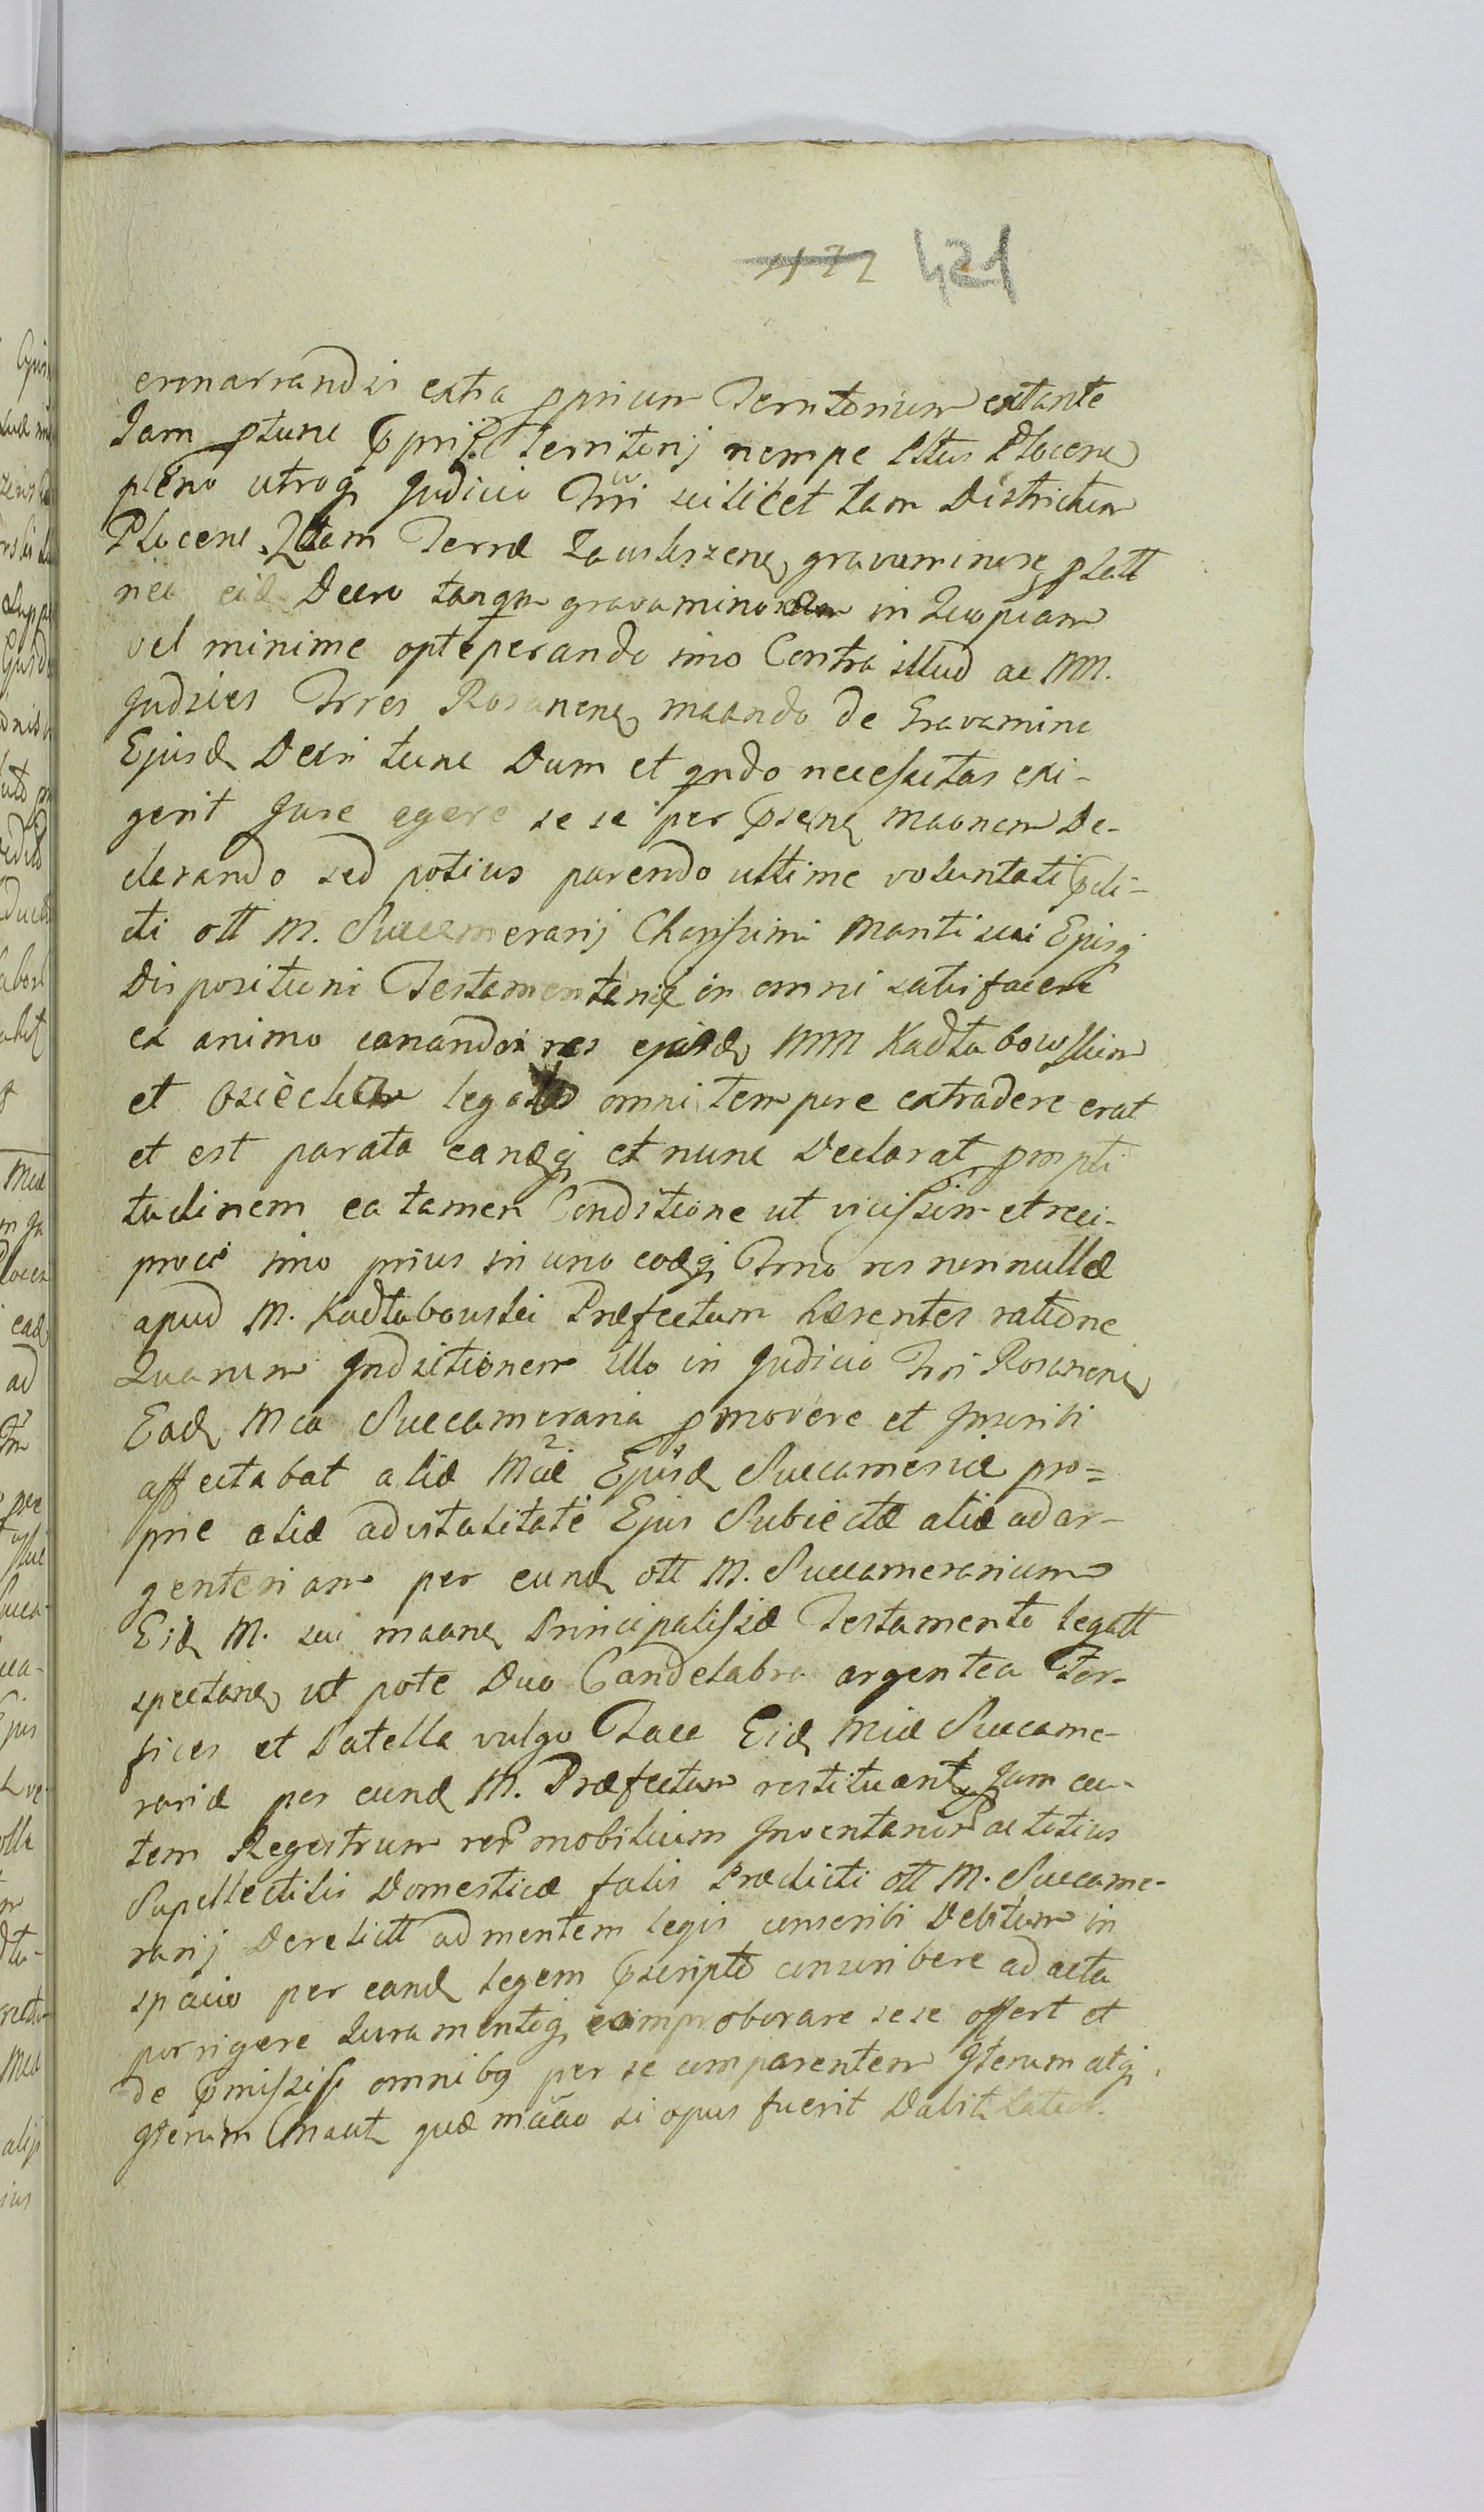 421
extra pprium Territorium extante
Jam ptunc Territorij nempe Pltus Plocen
pleno utroq Judicio Trri scilicet tam Districtum
Plocen Qtam Terræ gravaminose platt
nec eid Decro tanqm in Quopiam
vel minime optêperando imo Contra illud ac MM.
Judices Trres Rosanen maando de Gravamine
Ejusd Decri tunc Dum et qndo necessitas exi-
gerit Jure egere se se per psene maanem De-
clarando sed potius parendo ultime voluntati pdi-
cti ott M. Succamerarij Charissimi Mariti sui Ejusq
Dispositioni Testamentariæ in omni satisfacere
ex animo conando res ejusd MM Kadłubowskim
et legato omni tempore extradere erat
et est parata eandq et nunc Declarat prompti
tudinem ea tamen Conditione ut vicissim et reci-
proce imo prius in uno eodq Trmo res nonnullæ
apud M. Kadłubowski Præfectum hærentes ratione
Quarum Inditionem illo in Judicio Trri Rosanen
Ead Mca Succameraria pmovere et Inscribi
affectabat aliæ Mcæ Ejusd Succameriæ pro=
priæ aliæ advitalitatê Ejus Subiectæ aliæ ad ar-
genteriam per eund ott M. Succamerarium
Eid M. suæ maane Principalissæ Testamento legatt
spectane ut pote Duo Candelabra argentea For-
fices et Patella vulgo Tace Eid Mcæ Succame-
rariæ per eund M. Præfectum restituant Jam au-
tem Regestrum rer mobilium Inventarior ac totius
Supellectilis Domesticæ fatis Prædicti ott M. Succame-
rarij Derelictt ad mentem legis conscribi Debitum in
spacio per eand legem pscripto conscribere ad acta
porrigere Juramentoq comproborare sese offert et
de pmissis omnibq per se comparentem Iterum atq
Iterum quæ maao si opus fuerit Dabit